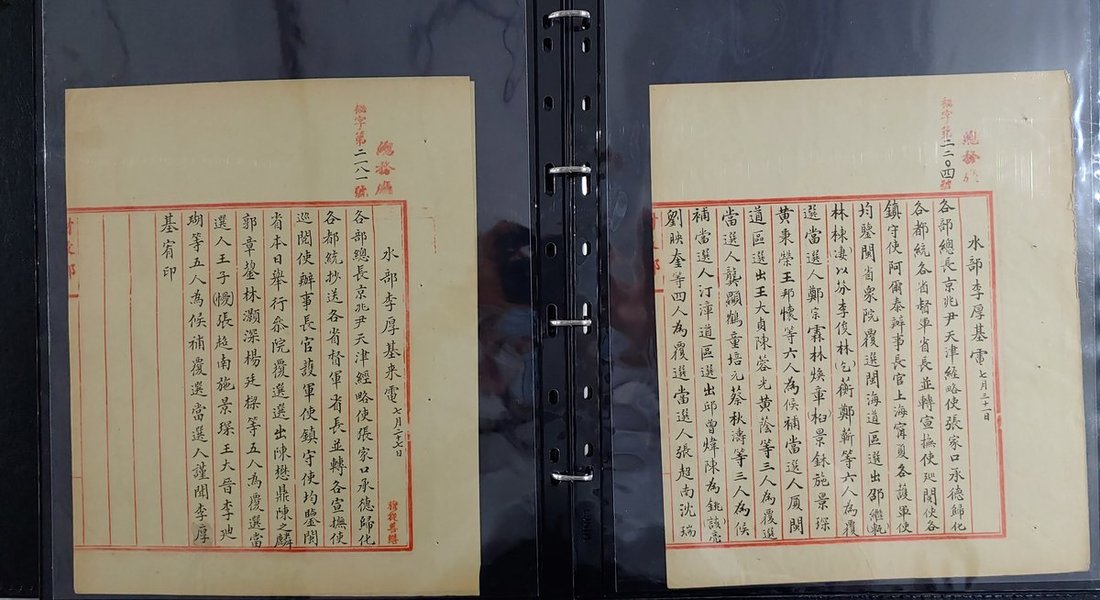 秘字第二二〇四號
總務廳
水部李厚基電 七月三十一日
各部總長京兆尹天津經略使張家口承德歸化
各都統各省督軍省長並轉宣撫使巡閱使各
鎮守使阿爾泰辦事長官上海甯夏各護軍使
均鑒閩省衆院覆選閩海道區選出邵繼
林棟凄以芬李俊林(乞)蘅鄭蘄等六人為覆
選當選人鄭宗霖林煥章(柏)景銖施景琛
黃秉榮王邦懷等六人為候補當選人厦門
道區選出王大貞陳蓉光黃蔭等三人為覆選
當選人龔顯鶴童培元蔡秋濤等三人為候
補當選人汀漳道區選出邱曾煒陳為銚該當
劉映奎等四人為覆選當選人張超南沈瑞
秘字第二二八一號
總務廳
水部李厚基来電 七月二十七日
各部總長京兆尹天津經略使張家口承德歸化
各都統抄送各省督軍省長並轉各宣撫使
巡閱使辦事長官護軍使鎮守使均鑒閩
省本日舉行叅院覆選選出陳懋鼎陳之麟
郭章鋆林灝深楊廷樑等五人為覆選當
選人王子(懓)張超南施景琛王大晉李廸
瑚等五人為候補覆選當選人謹聞李厚
基宥印
財政部